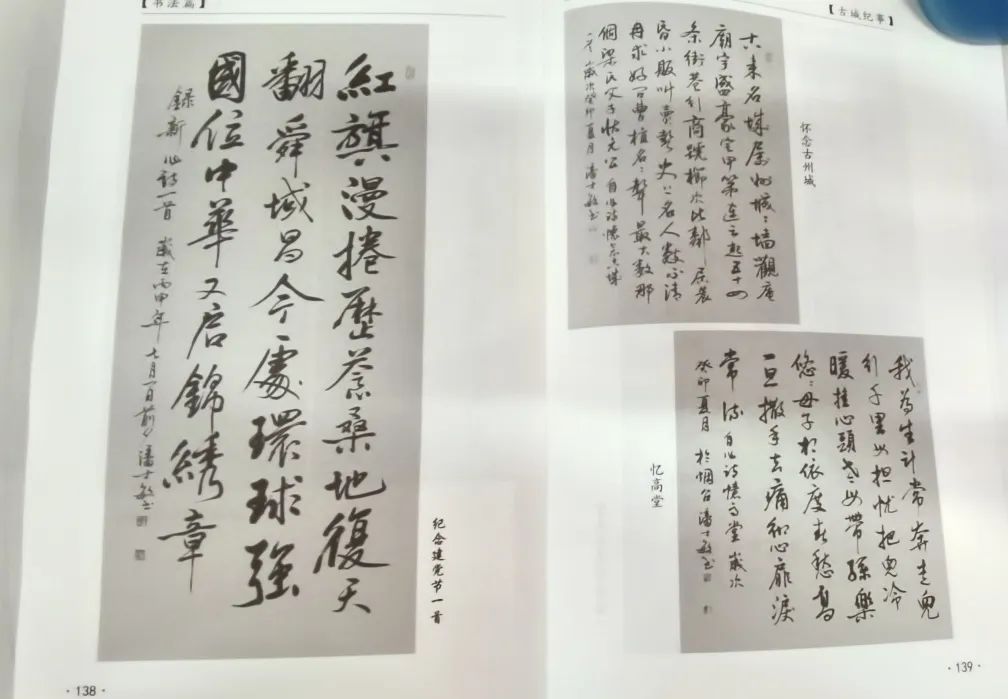 【书法篇】
紅旗漫捲歷蒼桑地復天
翻舜域昌今處環球强
國位中華又启錦綉章
錄新作詩一首 歲在丙申年七月一日前夕潘士敏书
纪念建党节一首
·138·
【古城纪事】
古来名城屬州城城墻觀庵
廟宇盛豪宅甲第連云起五十四
条街巷行商號櫛次比鄰居裳
昏小販叫賣彭史上名人數不清
冉求好學曹植名名聲最大數那
個梁氏父子状元公 自作詩懷念古城
一首 歲次癸卯夏月 潘士敏书
怀念古州城
我為生計常奔走兒
行千里母担忧把兒冷
暖挂心頭老母帶孫樂
悠悠母子相依度春愁烏
旦撒手去痛徹心扉淚
常流 自作詩憶高堂 歲次
癸卯夏月 於烟台 潘士敏书
忆高堂
·139·